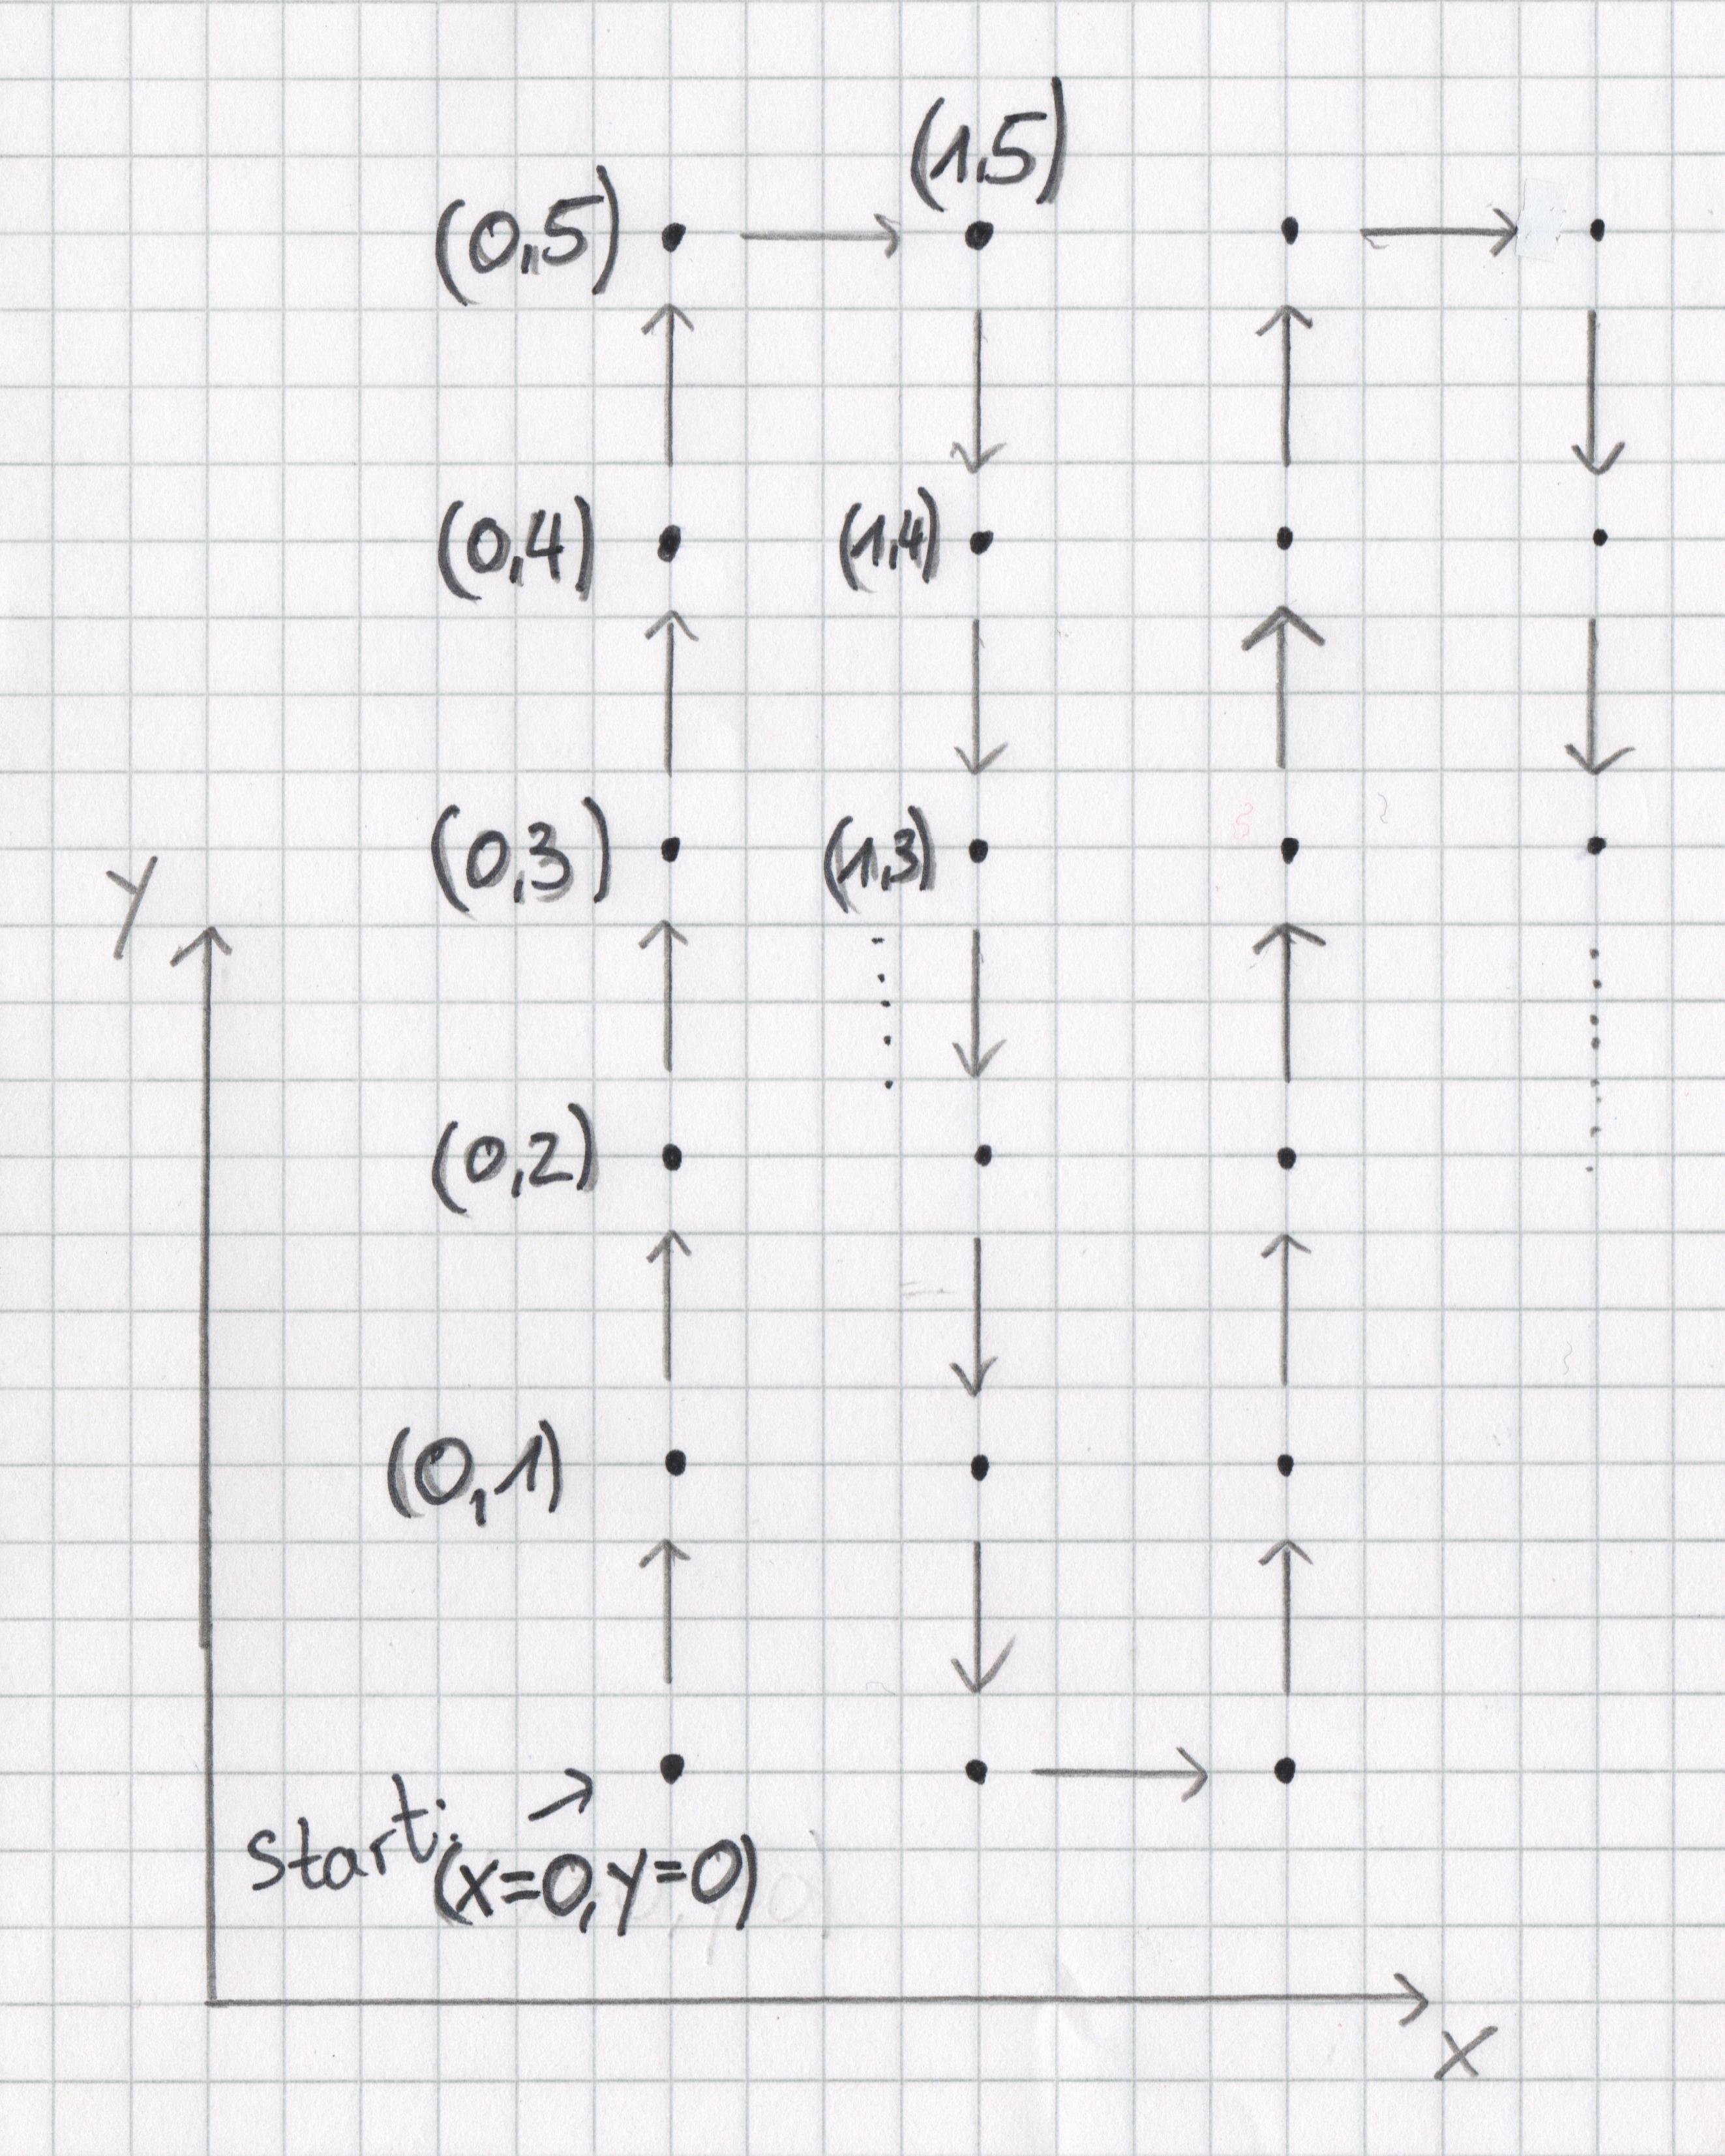 (1,5)
(0,5)
(0,4) (1,4)
(0,3) (1,3)
Y
(0,2)
(0,1)
Start:
(x=0, y=0)
X